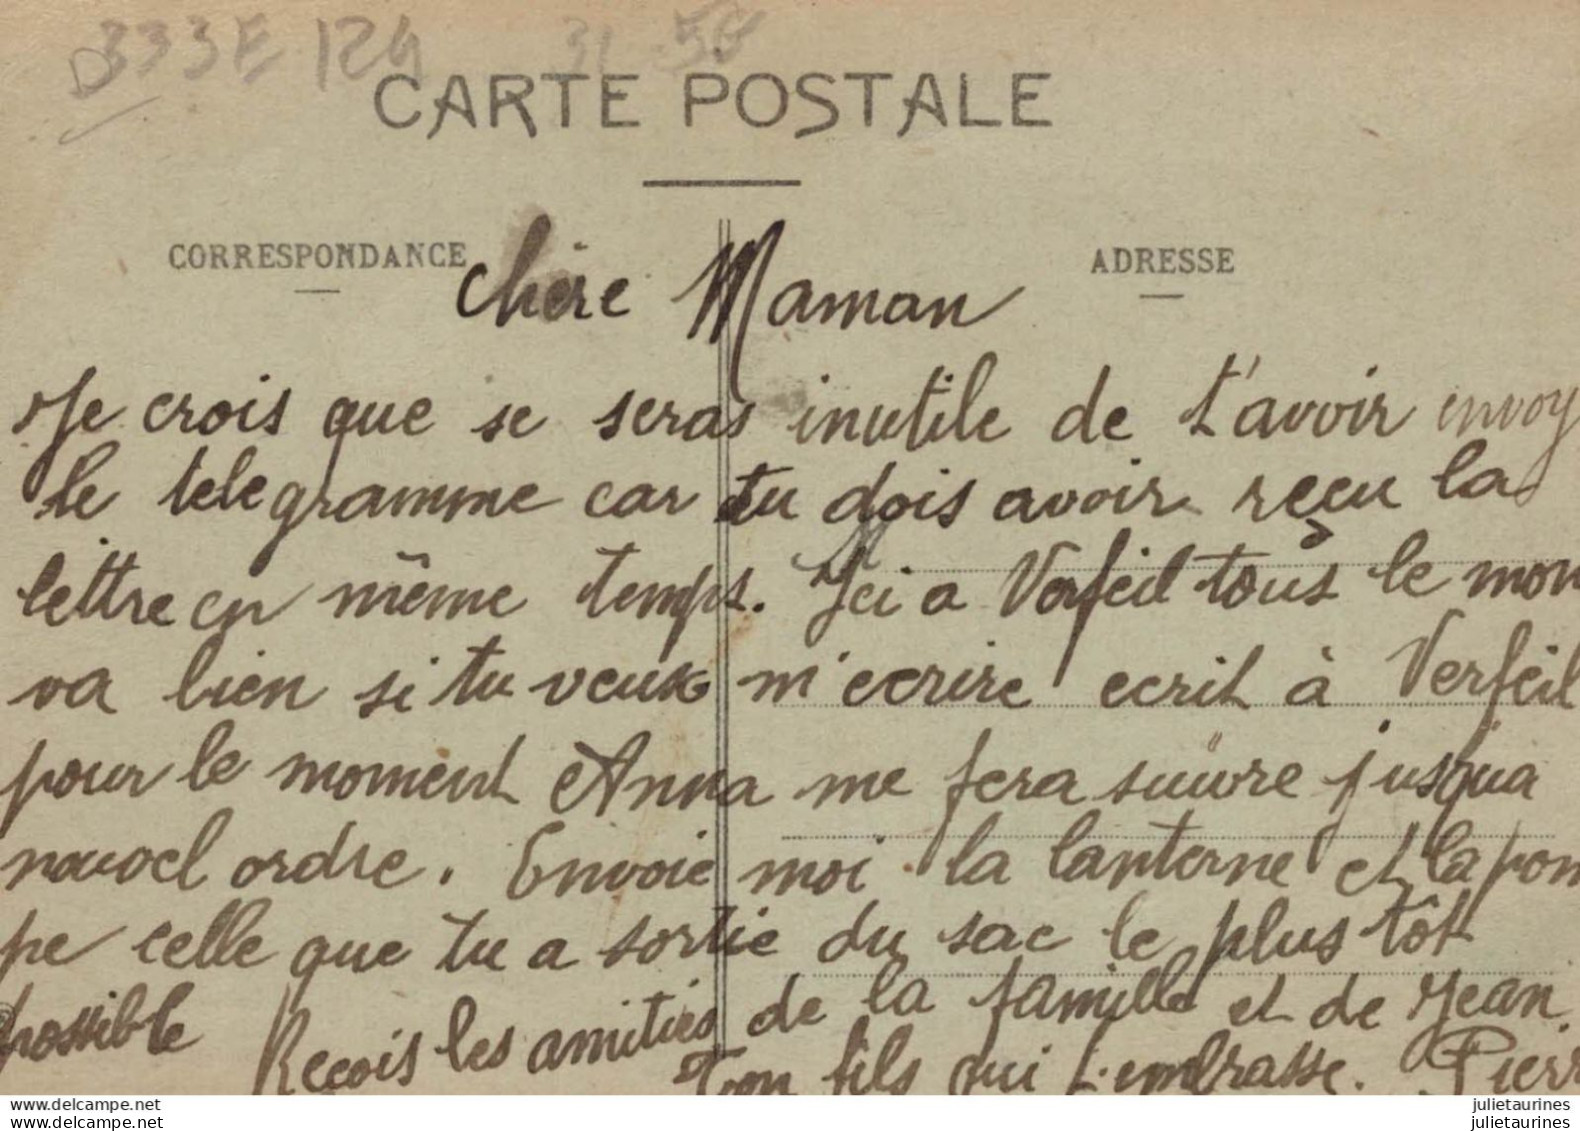 333E 124 31 50
CARTE POSTALE
CORRESPONDANCE
ADRESSE
Chère Maman
Je crois que se seras inutile de t'avoir envoy
le telegramme car tu dois avoir reçu la
lettre en même temps. Ici a Verfeil tous le mon
va bien si tu veux m'ecrire ecrit à Verfeil
pour le moment Anna me fera suivre jusqua
nouvel ordre. Envoie moi la lanterne et la pom
pe celle que tu a sortie du sac le plus tôt
possible Reçois les amitiés de la famille et de Jean.
Ton fils qui t'embrasse. Pierr
julietaurines.com
julietaurines
julietaurines.com
julietaurines